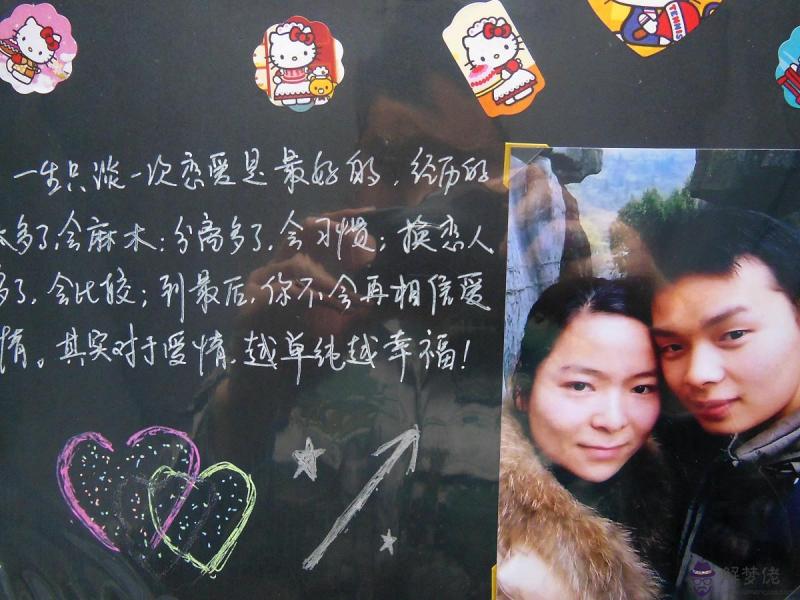 一生只谈一次恋爱是最好的，经历的
太多了，会麻木；分离多了，会习惯；换恋人
多了，会比较；到最后，你不会再相信爱
情。其实对于爱情，越单纯越幸福！
TENNIS
解梦佬